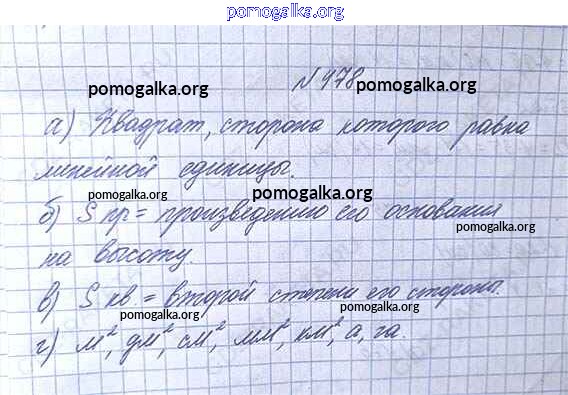 pomogalka.org
N 978
pomogalka.org pomogalka.org
а) Квадрат, сторона которого равна
линейной единицы.
pomogalka.org pomogalka.org
б) S пр = произведению его основания
pomogalka.org
на высоту.
в) S кв = второй степени его стороны.
pomogalka.org pomogalka.org
г) м², дм², см², мм², км², а, га.